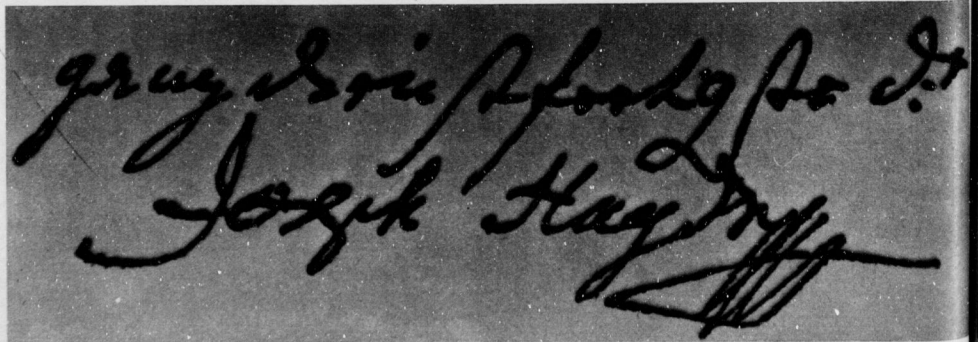 ganz dienstfertigster d:r
Joseph Haydn